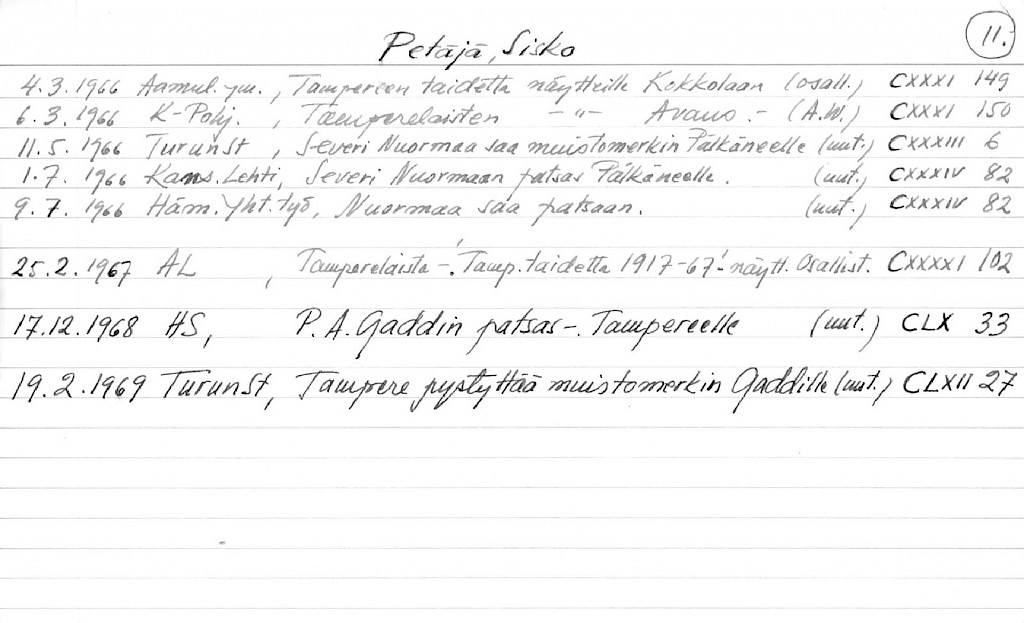 11.
Petäjä, Sisko
4.3.1966 Aamul. ym., Tampereen taidetta näytteille Kokkolaan (osall.) CXXXI 149
6.3.1966 K-Pohj. , Tamperelaisten -"- Avaus.- (A.W.) CXXXI 150
11.5.1966 TurunSt , Severi Nuormaa saa muistomerkin Pälkäneelle (uut.) CXXXIII 6
1.7.1966 Kans.Lehti, Severi Nuormaan patsas Pälkäneelle. (uut.) CXXXIV 82
9.7.1966 Häm.Yht.työ, Nuormaa saa patsaan. (uut.) CXXXIV 82
25.2.1967 AL , Tamperelaista -'. Tamp. taidetta 1917-67'-näytt. Osallist. CXXXXI 102
17.12.1968 HS, P.A. Gaddin patsas -. Tampereelle (uut.) CLX 33
19.2.1969 TurunSt, Tampere pystyttää muistomerkin Gaddille (uut.) CLXII 27